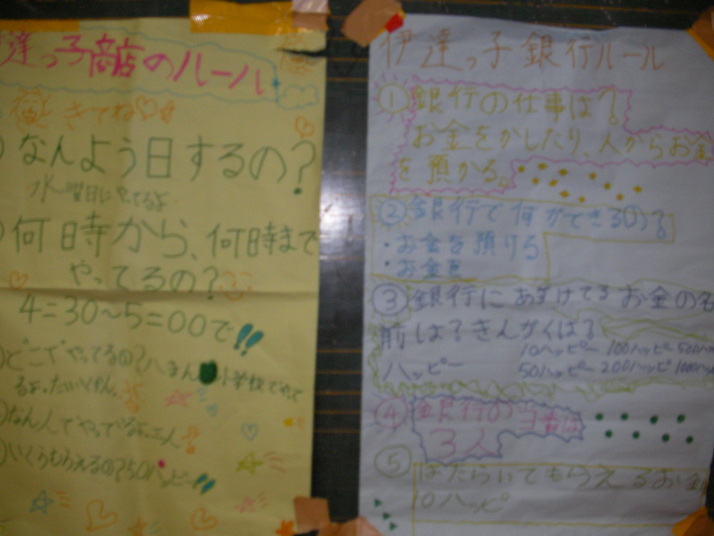 達っ子商店のルール
きてね
なんよう日するの?
水曜日にやってるよ
何時から、何時まで
やってるの?
4:30~5:00で!!
どこでやってるの?
小学校でやって
るよ。
なん人でやってるよ。二人
いくらもらえるの?50ハッピー!!
伊達っ子銀行ルール
① 銀行の仕事は?
お金をかしたり、人からお金
を預かる。
② 銀行で何ができるの?
・お金を預ける
・お金を
③ 銀行にあずけてるお金の名
前は?きんがくは?
10ハッピー 100ハッピー
ハッピー
50ハッピー 200ハッピー
④ 銀行の当番は
3人
⑤ はたらいてもらえるお金
10ハッピ